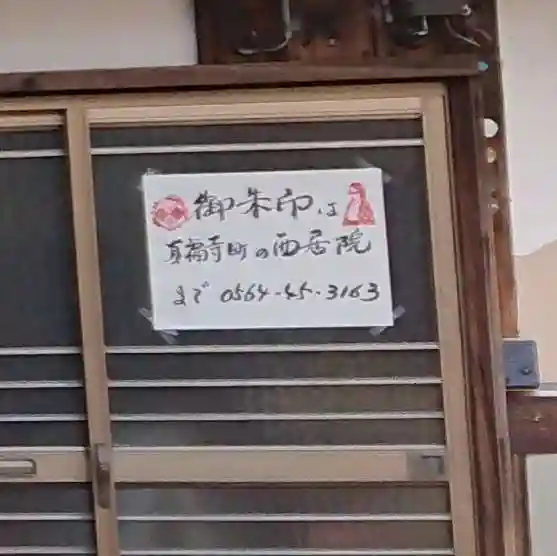 御朱印は
真福寺町の西居院
まで 0564-45-3163